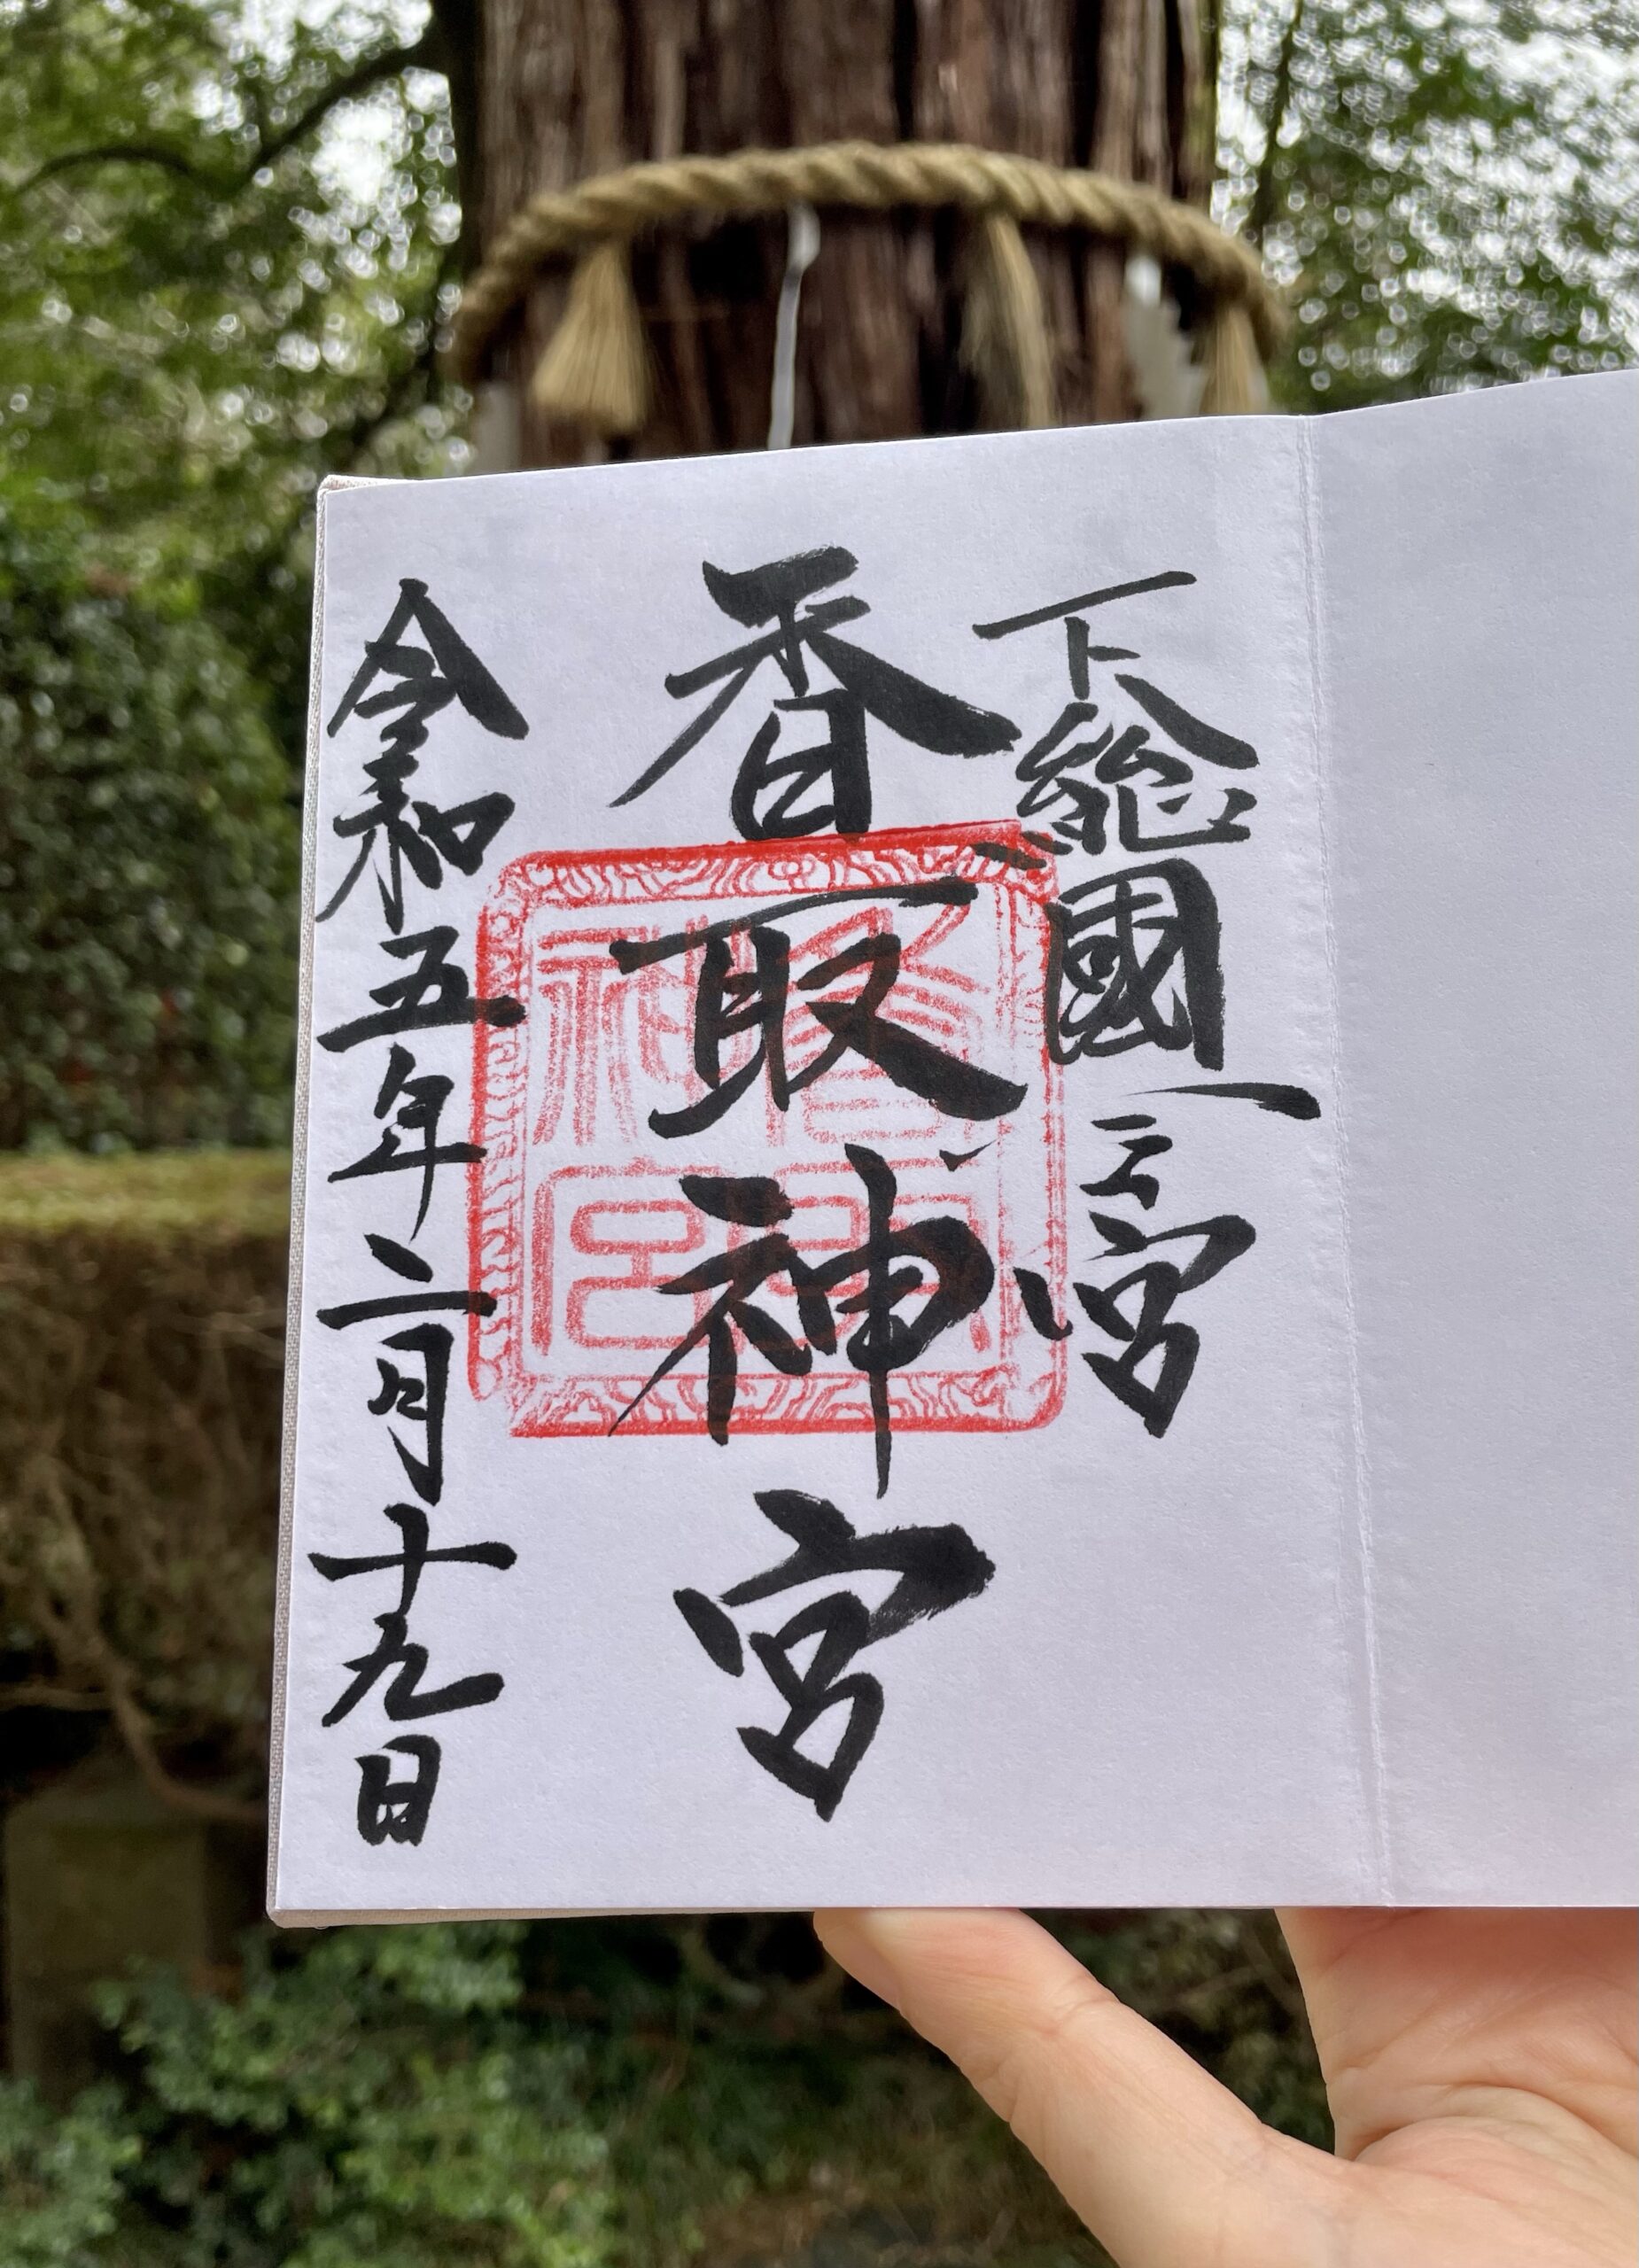 下総國一之宮
香取神宮
令和五年二月十九日
香取神宮